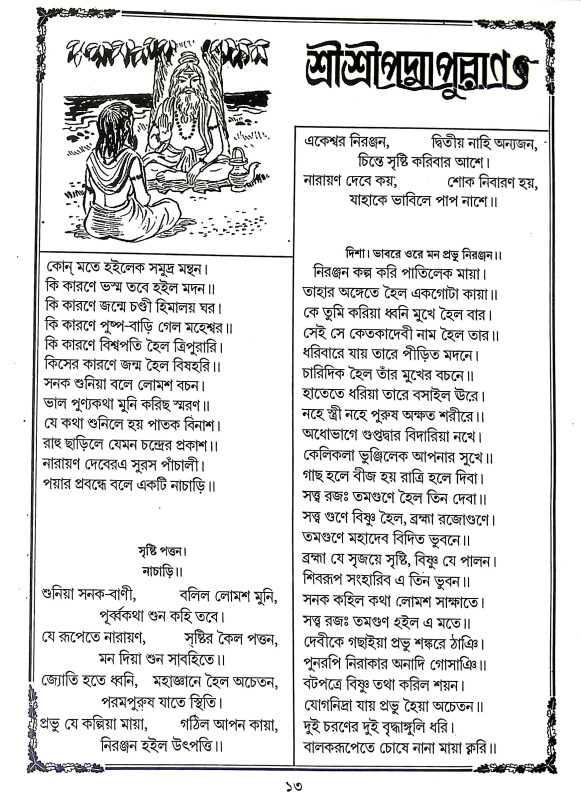 শ্রীশ্রীপদ্মাপুরাণ
কোন্ মতে হইলেক সমুদ্র মন্থন।
কি কারণে ভস্ম তবে হইল মদন॥
কি কারণে জন্মে চণ্ডী হিমালয় ঘর।
কি কারণে পুষ্প-বাড়ি গেল মহেশ্বর॥
কি কারণে বিশ্বপতি হৈল ত্রিপুরারি।
কিসের কারণে জন্ম হৈল বিষহরি॥
সনক শুনিয়া বলে লোমশ বচন।
ভাল পুণ্যকথা মুনি করিছ স্মরণ॥
যে কথা শুনিলে হয় পাতক বিনাশ।
রাহু ছাড়িলে যেমন চন্দ্রের প্রকাশ॥
নারায়ণ দেবেরএ সুরস পাঁচালী।
পয়ার প্রবন্ধে বলে একটি নাচাড়ি॥
সৃষ্টি পত্তন।
নাচাড়ি॥
শুনিয়া সনক-বাণী, বলিল লোমশ মুনি,
পূর্ব্বকথা শুন কহি তবে।
যে রূপেতে নারায়ণ, সৃষ্টির কৈল পত্তন,
মন দিয়া শুন সাবহিতে॥
জ্যোতি হতে ধ্বনি, মহাজ্ঞানে হৈল অচেতন,
পরমপুরুষ যাতে স্থিতি।
প্রভু যে কল্পিয়া মায়া, গঠিল আপন কায়া,
নিরঞ্জন হইল উৎপত্তি॥
একেশ্বর নিরঞ্জন, দ্বিতীয় নাহি অন্যজন,
চিন্তে সৃষ্টি করিবার আশে।
নারায়ণ দেবে কয়, শোক নিবারণ হয়,
যাহাকে ভাবিলে পাপ নাশে॥
দিশা। ভাবরে ওরে মন প্রভু নিরঞ্জন॥
নিরঞ্জন কল্প করি পাতিলেক মায়া।
তাহার অঙ্গেতে হৈল একগোটা কায়া॥
কে তুমি করিয়া ধ্বনি মুখে হৈল বার।
সেই সে কেতকাদেবী নাম হৈল তার॥
ধরিবারে যায় তারে পীড়িত মদনে।
চারিদিক হৈল তাঁর মুখের বচনে॥
হাতেতে ধরিয়া তারে বসাইল ঊরে।
নহে স্ত্রী নহে পুরুষ অক্ষত শরীরে॥
অধোভাগে গুপ্তদ্বার বিদারিয়া নখে।
কেলিকলা ভুঞ্জিলেক আপনার সুখে॥
গাছ হলে বীজ হয় রাত্রি হলে দিবা।
সত্ত্ব রজঃ তমগুণে হৈল তিন দেবা॥
সত্ত্ব গুণে বিষ্ণু হৈল, ব্রহ্মা রজোগুণে।
তমগুণে মহাদেব বিদিত ভুবনে॥
ব্রহ্মা যে সৃজয়ে সৃষ্টি, বিষ্ণু যে পালন।
শিবরূপ সংহারিব এ তিন ভুবন॥
সনক কহিল কথা লোমশ সাক্ষাতে।
সত্ত্ব রজঃ তমগুণ হইল এ মতে॥
দেবীকে গছাইয়া প্রভু শঙ্করে ঠাঞি।
পুনরপি নিরাকার অনাদি গোসাঞি॥
বটপত্রে বিষ্ণু তথা করিল শয়ন।
যোগনিদ্রা যায় প্রভু হৈয়া অচেতন॥
দুই চরণের দুই বৃদ্ধাঙ্গুলি ধরি।
বালকরূপেতে চোষে নানা মায়া করি॥
১৩